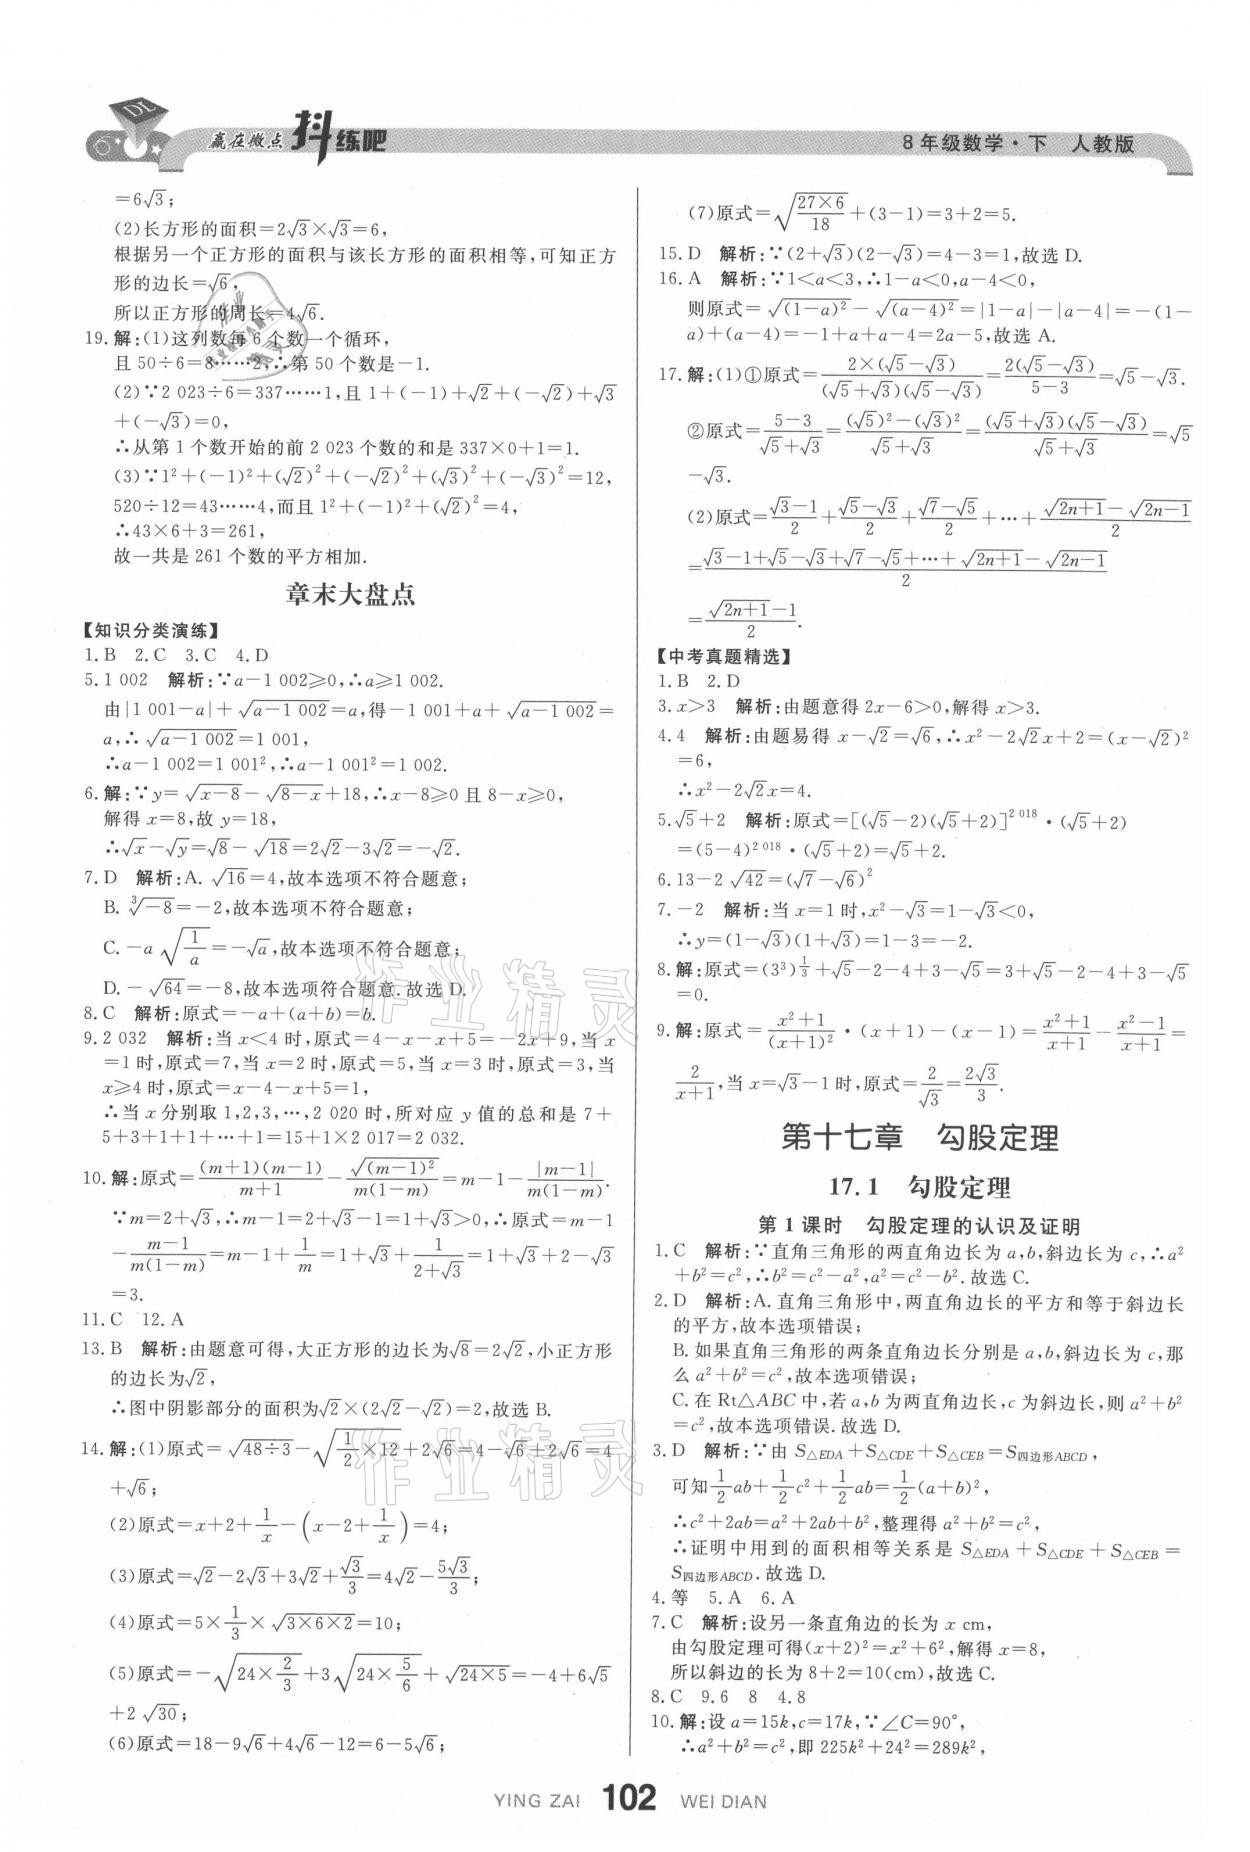 DL
赢在微点 抖练吧
8年级数学·下 人教版
=6√3;
(2)长方形的面积=2√3×√3=6,
根据另一个正方形的面积与该长方形的面积相等,可知正方
形的边长=√6,
所以正方形的周长=4√6.
19.解:(1)这列数每6个数一个循环,
且50÷6=8……2,∴第50个数是-1.
(2)∵2 023÷6=337……1,且1+(-1)+√2+(-√2)+√3
+(-√3)=0,
∴从第1个数开始的前2 023个数的和是337×0+1=1.
(3)∵1²+(-1)²+(√2)²+(-√2)²+(√3)²+(-√3)²=12,
520÷12=43……4,而且1²+(-1)²+(√2)²=4,
∴43×6+3=261,
故一共是261个数的平方相加.
章末大盘点
【知识分类演练】
1.B 2.C 3.C 4.D
5.1 002 解析:∵a-1 002≥0,∴a≥1 002.
由|1 001-a|+√(a-1 002)=a,得-1 001+a+√(a-1 002)=
a,∴√(a-1 002)=1 001,
∴a-1 002=1 001²,∴a-1 001²=1 002.
6.解:∵y=√(x-8)-√(8-x)+18,∴x-8≥0且8-x≥0,
解得x=8,故y=18,
∴√x-√y=√8-√18=2√2-3√2=-√2.
7.D 解析:A.√16=4,故本选项不符合题意;
B.∛-8=-2,故本选项不符合题意;
C.-a√(1/a)=-√a,故本选项不符合题意;
D.-√64=-8,故本选项符合题意.故选D.
8.C 解析:原式=-a+(a+b)=b.
9.2 032 解析:当x<4时,原式=4-x-x+5=-2x+9,当x
=1时,原式=7,当x=2时,原式=5,当x=3时,原式=3,当
x≥4时,原式=x-4-x+5=1,
∴当x分别取1,2,3,…,2 020时,所对应y值的总和是7+
5+3+1+1+…+1=15+1×2 017=2 032.
10.解:原式=(m+1)(m-1)/(m+1)-√(m-1)²/m(m-1)=m-1-|m-1|/m(m-1).
∵m=2+√3,∴m-1=2+√3-1=1+√3>0,∴原式=m-1
-(m-1)/m(m-1)=m-1+1/m=1+√3+1/(2+√3)=1+√3+2-√3
=3.
11.C 12.A
13.B 解析:由题意可得,大正方形的边长为√8=2√2,小正方形
的边长为√2,
∴图中阴影部分的面积为√2×(2√2-√2)=2,故选B.
14.解:(1)原式=√(48÷3)-√(1/2×12)+2√6=4-√6+2√6=4
+√6;
(2)原式=x+2+1/x-(x-2+1/x)=4;
(3)原式=√2-2√3+3√2+√3/3=4√2-5√3/3;
(4)原式=5×1/3×√(3×6×2)=10;
(5)原式=-√(24×2/3)+3√(24×5/6)+√(24×5)=-4+6√5
+2√30;
(6)原式=18-9√6+4√6-12=6-5√6;
(7)原式=√(27×6/18)+(3-1)=3+2=5.
15.D 解析:∵(2+√3)(2-√3)=4-3=1,故选D.
16.A 解析:∵1<a<3,∴1-a<0,a-4<0,
则原式=√(1-a)²-√(a-4)²=|1-a|-|a-4|=-(1-
a)+(a-4)=-1+a+a-4=2a-5,故选A.
17.解:(1)①原式=2×(√5-√3)/(√5+√3)(√5-√3)=2(√5-√3)/(5-3)=√5-√3.
②原式=(5-3)/(√5+√3)=((√5)²-(√3)²)/(√5+√3)=(√5+√3)(√5-√3)/(√5+√3)=√5
-√3.
(2)原式=(√3-1)/2+(√5-√3)/2+(√7-√5)/2+…+(√(2n+1)-√(2n-1))/2
=(√3-1+√5-√3+√7-√5+…+√(2n+1)-√(2n-1))/2
=(√(2n+1)-1)/2.
【中考真题精选】
1.B 2.D
3.x>3 解析:由题意得2x-6>0,解得x>3.
4.4 解析:由题易得x-√2=√6,∴x²-2√2x+2=(x-√2)²
=6,
∴x²-2√2x=4.
5.√5+2 解析:原式=[(√5-2)(√5+2)]²⁰¹⁸·(√5+2)
=(5-4)²⁰¹⁸·(√5+2)=√5+2.
6.13-2√42=(√7-√6)²
7.-2 解析:当x=1时,x²-√3=1-√3<0,
∴y=(1-√3)(1+√3)=1-3=-2.
8.解:原式=(3³)^(1/3)+√5-2-4+3-√5=3+√5-2-4+3-√5
=0.
9.解:原式=(x²+1)/(x+1)²·(x+1)-(x-1)=(x²+1)/(x+1)-(x²-1)/(x+1)=
2/(x+1),当x=√3-1时,原式=2/√3=2√3/3.
第十七章 勾股定理
17.1 勾股定理
第1课时 勾股定理的认识及证明
1.C 解析:∵直角三角形的两直角边长为a,b,斜边长为c,∴a²
+b²=c²,∴b²=c²-a²,a²=c²-b².故选C.
2.D 解析:A.直角三角形中,两直角边长的平方和等于斜边长
的平方,故本选项错误;
B.如果直角三角形的两条直角边长分别是a,b,斜边长为c,那
么a²+b²=c²,故本选项错误;
C.在Rt△ABC中,若a,b为两直角边长,c为斜边长,则a²+b²
=c²,故本选项错误.故选D.
3.D 解析:∵由S△EDA+S△CDE+S△CEB=S四边形ABCD,
可知1/2ab+1/2c²+1/2ab=1/2(a+b)²,
∴c²+2ab=a²+2ab+b²,整理得a²+b²=c²,
∴证明中用到的面积相等关系是S△EDA+S△CDE+S△CEB=
S四边形ABCD.故选D.
4.等 5.A 6.A
7.C 解析:设另一条直角边的长为x cm,
由勾股定理可得(x+2)²=x²+6²,解得x=8,
所以斜边的长为8+2=10(cm),故选C.
8.C 9.6 8 4.8
10.解:设a=15k,c=17k,∵∠C=90°,
∴a²+b²=c²,即225k²+24²=289k²,
YING ZAI 102 WEI DIAN
作业精灵
作业精灵